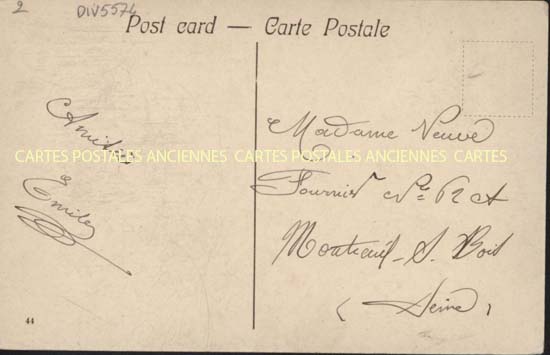 2
DIV5574
Post card — Carte Postale
Amitiés
Emile
Madame Veuve
Fournier Nº 62 A
Montreuil-S. Bois
(Seine)
44
CARTES POSTALES ANCIENNES CARTES POSTALES ANCIENNES CARTES